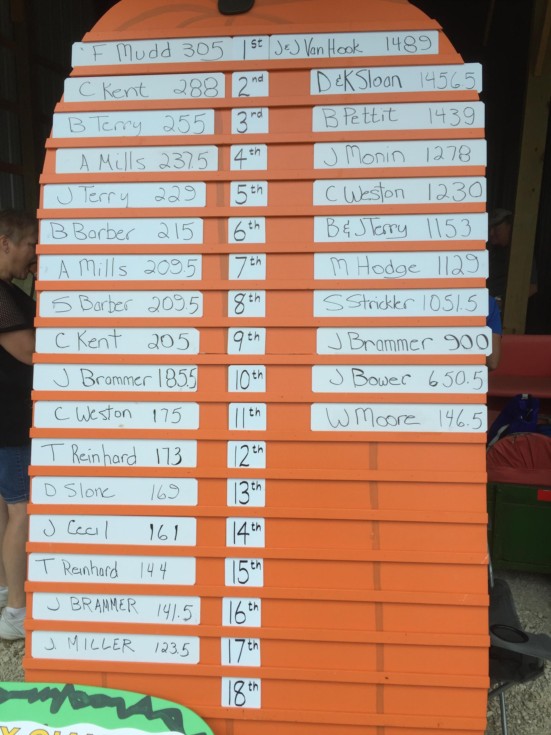 F Mudd 305 1st J&J Van Hook 1489
C Kent 288 2nd D&K Sloan 1456.5
B Terry 255 3rd B Pettit 1439
A Mills 237.5 4th J Monin 1278
J Terry 229 5th C Weston 1230
B Barber 215 6th B&J Terry 1153
A Mills 209.5 7th M Hodge 1129
S Barber 209.5 8th S Strickler 1051.5
C Kent 205 9th J Brammer 900
J Brammer 185.5 10th J Bower 650.5
C Weston 175 11th W Moore 146.5
T Reinhard 173 12th
D Slone 169 13th
J Cecil 161 14th
T Reinhard 144 15th
J BRAMMER 141.5 16th
J. MILLER 123.5 17th
18th